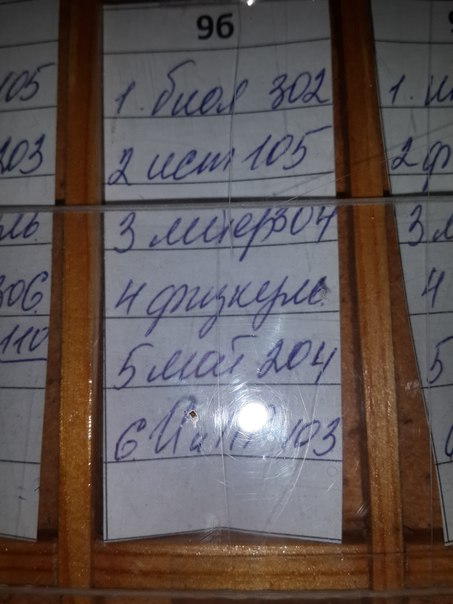 105
203
ль.
306
110
9б
1. биол 302
2 ист 105
3 литер 304
4 физкуль
5 мат 204
6 103
1. и
2 ф
3
4
5